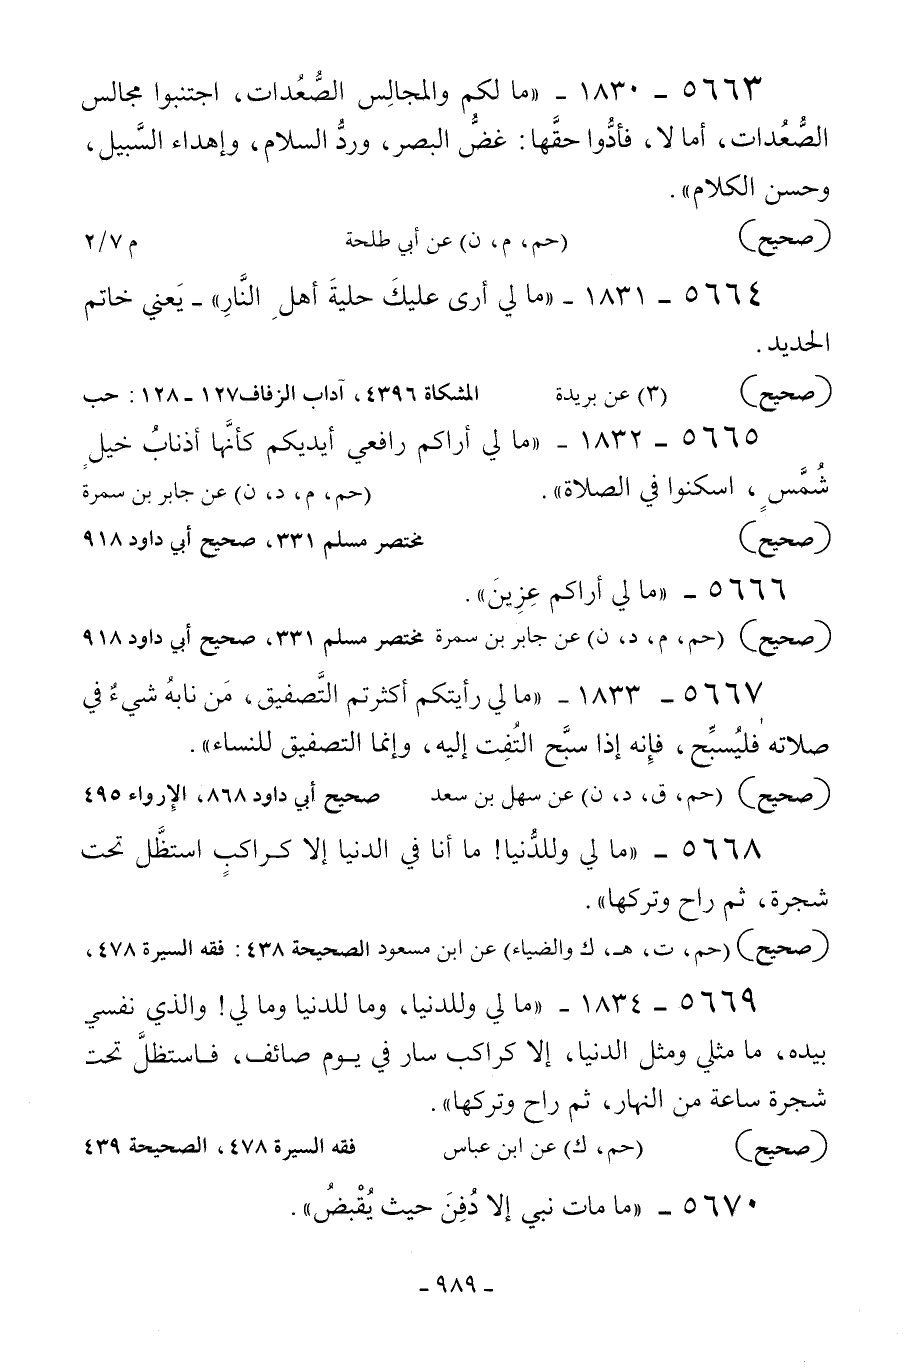 ٥٦٦٣ - ١٨٣٠ - «ما لكم والمجالِس الصُّعُدات، اجتنبوا مجالس
الصُّعُدات، أما لا، فأدُّوا حقَّها: غضُّ البصر، وردُّ السلام، وإهداء السَّبيل،
وحسن الكلام».
(صحيح) (حم، م، ن) عن أبي طلحة م ٢/٧
٥٦٦٤ - ١٨٣١ - «ما لي أرى عليكَ حليةَ أهلِ النَّارِ» - يَعني خاتم
الحديد.
(صحيح) (٣) عن بريدة المشكاة ٤٣٩٦، آداب الزفاف ١٢٧ - ١٢٨: حب
٥٦٦٥ - ١٨٣٢ - «ما لي أراكم رافعي أيديكم كأنَّها أذنابُ خيلٍ
شُمَّسٍ، اسكنوا في الصلاة». (حم، م، د، ن) عن جابر بن سمرة
(صحيح) مختصر مسلم ٣٣١، صحيح أبي داود ٩١٨
٥٦٦٦ - «ما لي أراكم عِزِينَ».
(صحيح) (حم، م، د، ن) عن جابر بن سمرة مختصر مسلم ٣٣١، صحيح أبي داود ٩١٨
٥٦٦٧ - ١٨٣٣ - «ما لي رأيتكم أكثرتم التَّصفيق، مَن نابهُ شيءٌ في
صلاته فليُسبِّح، فإنه إذا سبَّح التُفِت إليه، وإنما التصفيق للنساء».
(صحيح) (حم، ق، د، ن) عن سهل بن سعد صحيح أبي داود ٨٦٨، الإرواء ٤٩٥
٥٦٦٨ - «ما لي وللدُّنيا! ما أنا في الدنيا إلا كراكبٍ استظَّل تحت
شجرة، ثم راح وتركها».
(صحيح) (حم، ت، هـ، ك والضياء) عن ابن مسعود الصحيحة ٤٣٨: فقه السيرة ٤٧٨،
٥٦٦٩ - ١٨٣٤ - «ما لي وللدنيا، وما للدنيا وما لي! والذي نفسي
بيده، ما مثلي ومثل الدنيا، إلا كراكب سار في يوم صائف، فاستظلَّ تحت
شجرة ساعة من النهار، ثم راح وتركها».
(صحيح) (حم، ك) عن ابن عباس فقه السيرة ٤٧٨، الصحيحة ٤٣٩
٥٦٧٠ - «ما مات نبي إلا دُفِنَ حيث يُقْبضُ».
- ٩٨٩ -